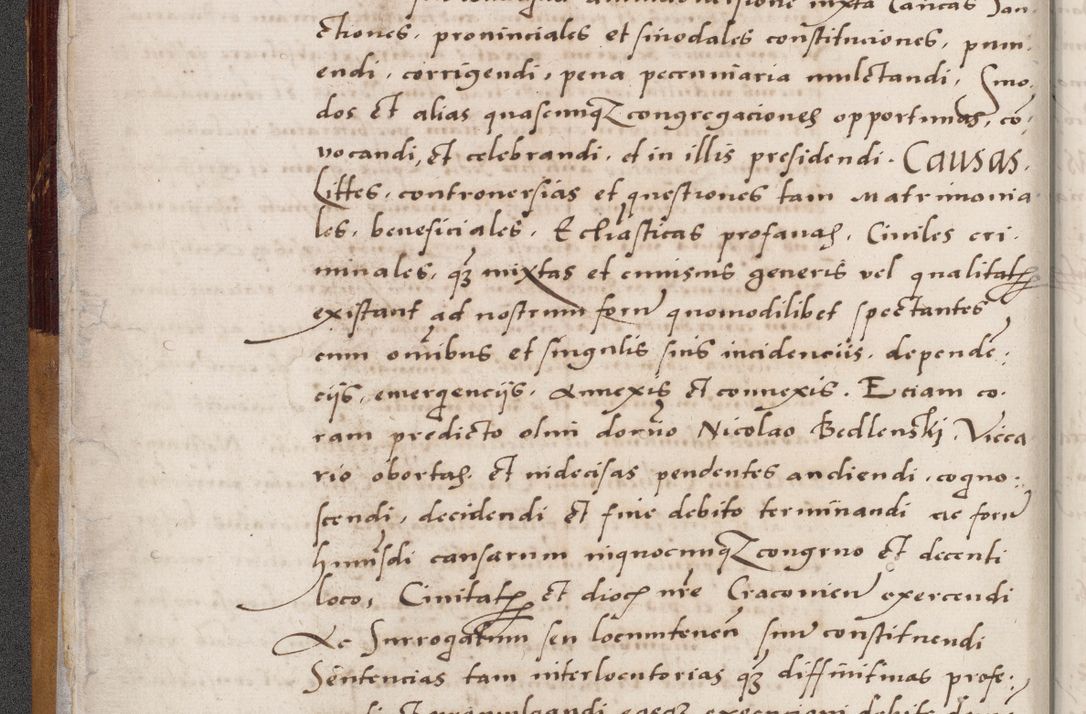 iuxta Canicas San-
ctiones, prouinciales et sinodales constituciones, puni-
endi, corrigendi, pena pecuniaria mulctandi, Sino-
dos et alias quascunq3 congregaciones opportunas, co-
uocandi, et celebrandi, et in illis presidendi. Causas,
Littes, controuersias et questiones tam Matrimonia
les, beneficiales, Ecchiasticas profanas, Ciuiles cri-
minales, q3 mixtas et cuiusuis generis vel qualitat
existant ad nostrum foru quomodilibet spectantes
cum omibus et singulis suis incidenciis, depende-
ciis, emergenciis, Annexis et connexis. Eciam co-
ram predicto olim domino Nicolao Bedlenski, Vicca
rio obortas et indecisas pendentes audiendi, cogno-
scendi, decidendi et fine debito terminandi ac foru
huiusdi causarum inquocunq3 congruo et decenti
loco, Ciuitat et dioc nre Cracouien exercendi
Ac Surrogatum seu locumtenen suu constituendi
Sentencias tam interlocutorias q3 diffinitiuas profe-